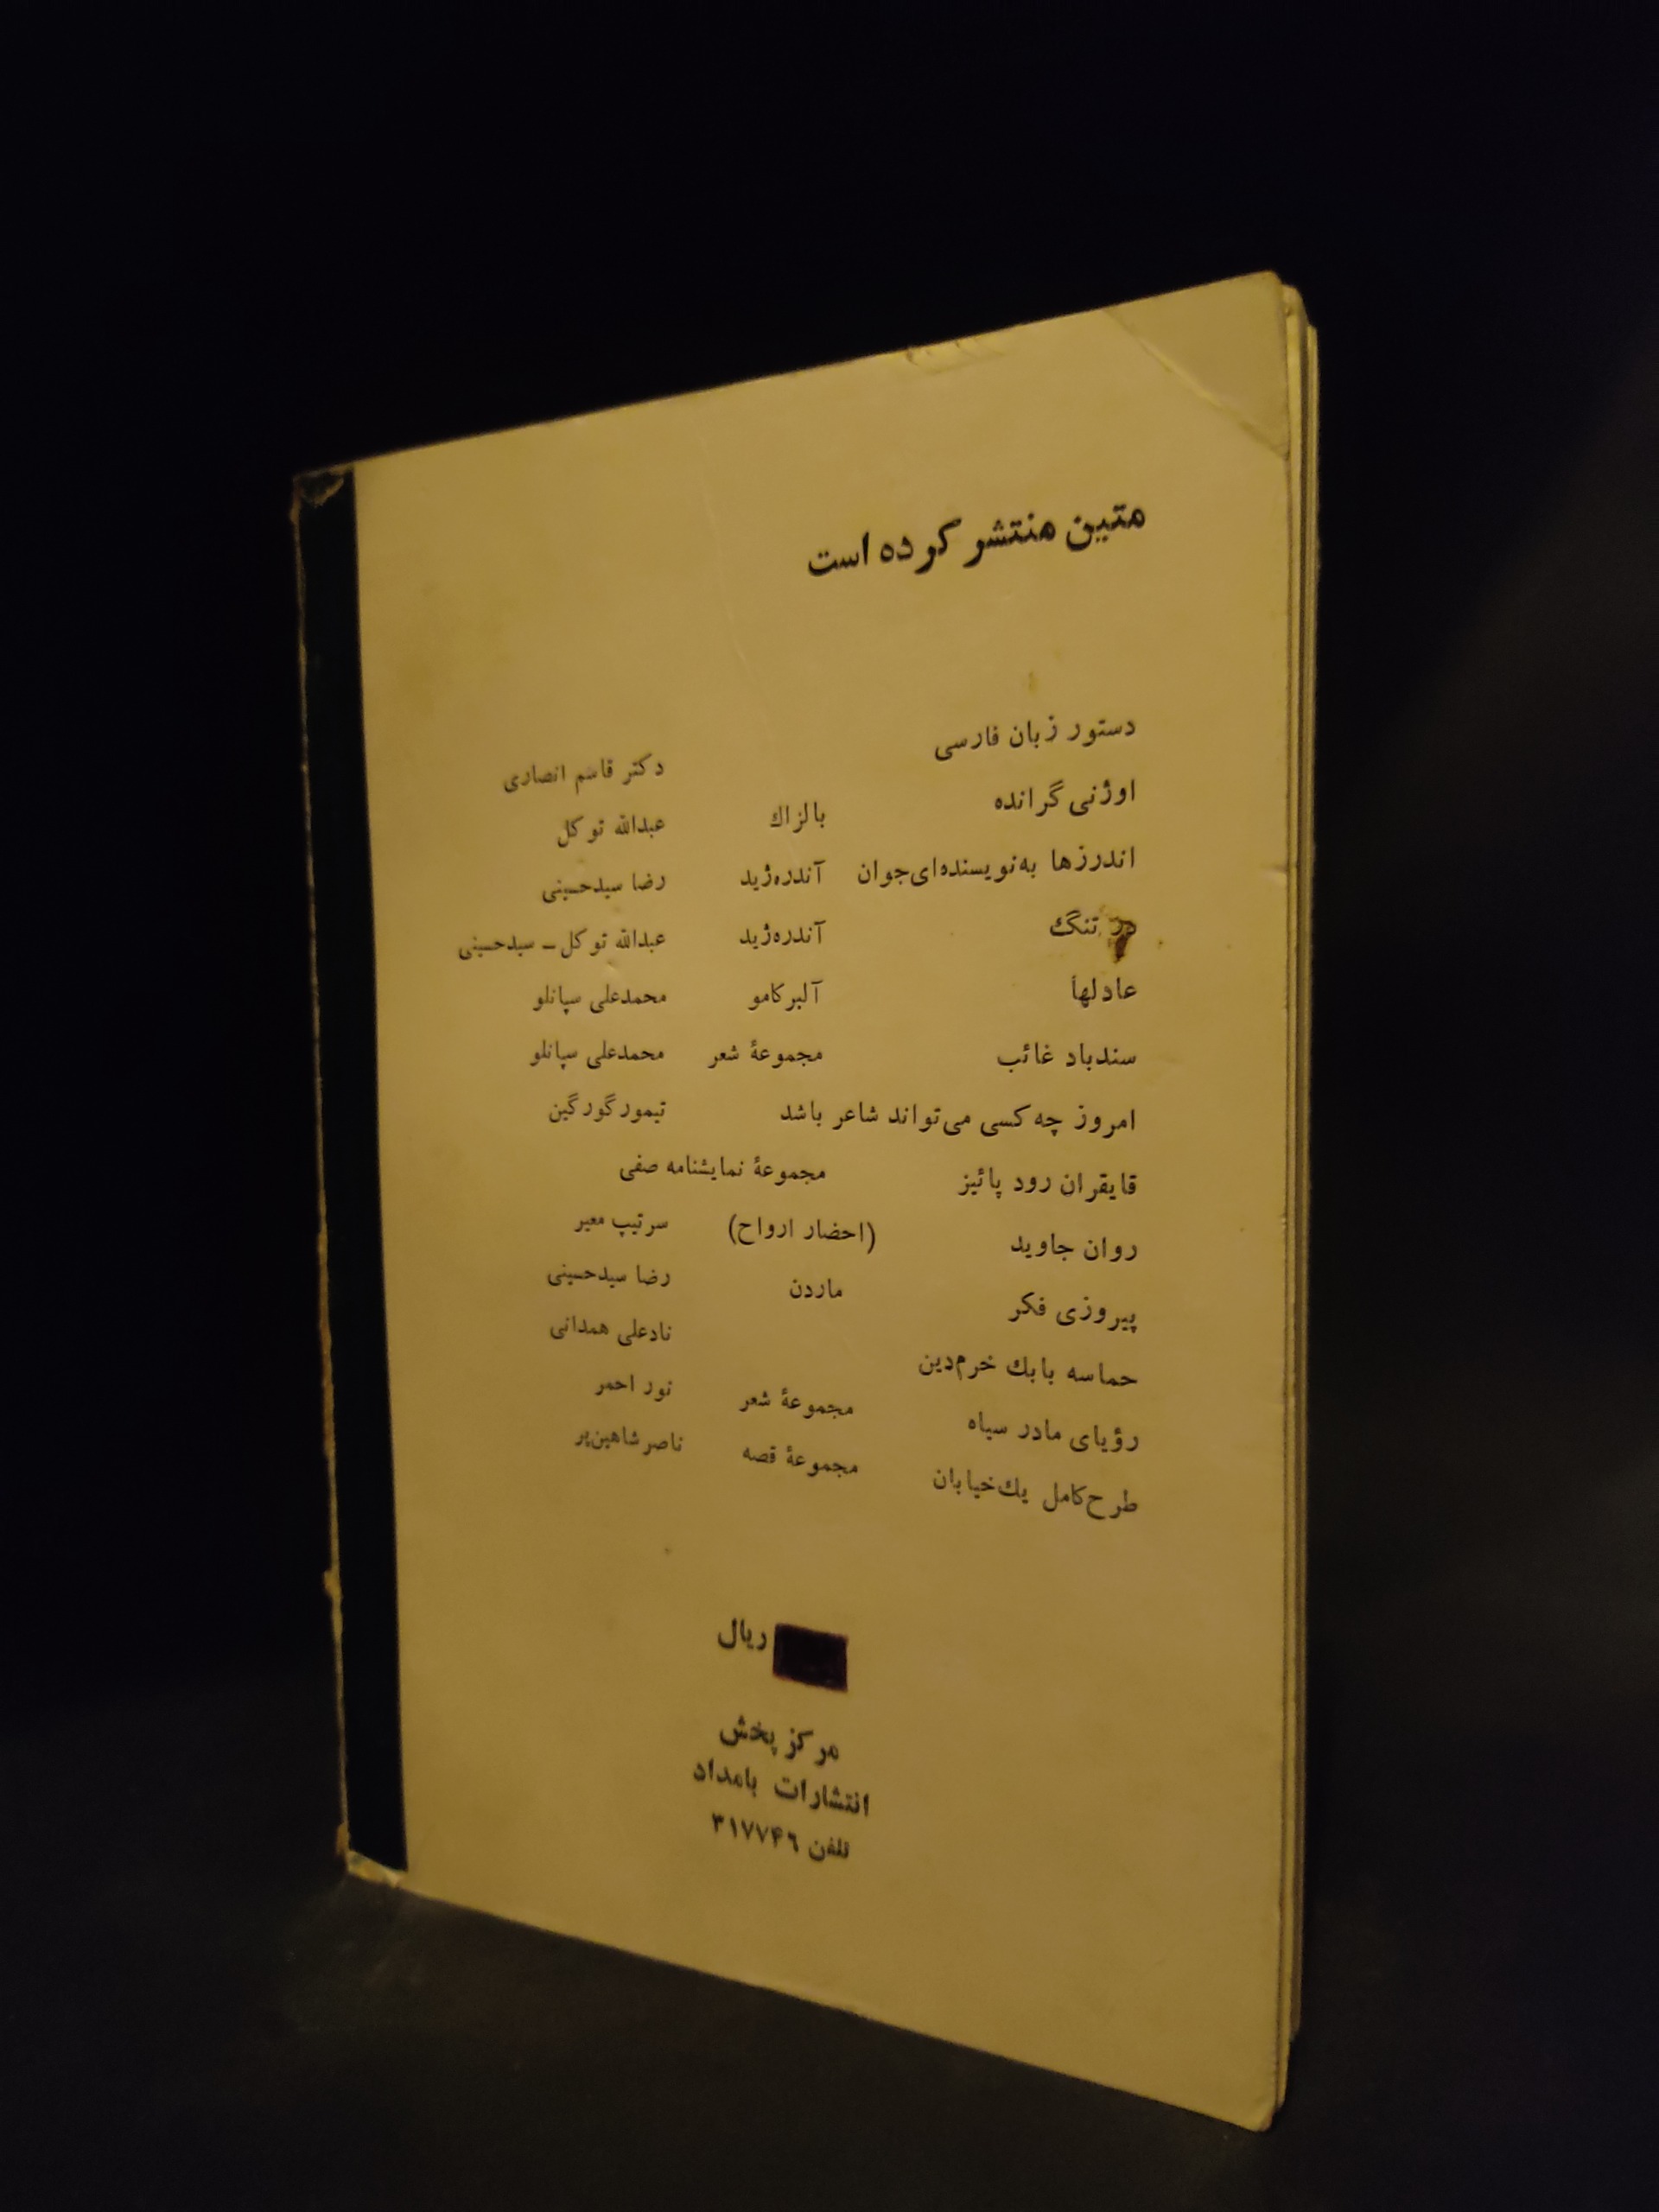 متین منتشر کرده است
دستور زبان فارسی دکتر قاسم انصاری
اوژنی گرانده بالزاك عبدالله توکل
اندرزها به‌نویسنده‌ای‌جوان آندره‌ژید رضا سیدحسینی
در تنگ آندره‌ژید عبدالله توکل ـ سیدحسینی
عادلها آلبرکامو محمدعلی سپانلو
سندباد غائب مجموعهٔ شعر محمدعلی سپانلو
امروز چه کسی می‌تواند شاعر باشد تیمور گورگین
قایقران رود پائیز مجموعهٔ نمایشنامه صفی
روان جاوید (احضار ارواح) سرتیپ معیر
پیروزی فکر ماردن رضا سیدحسینی
حماسه بابك خرم‌دین نادعلی همدانی
رؤیای مادر سیاه مجموعهٔ شعر نور احمر
طرح‌کامل یك‌خیابان مجموعهٔ قصه ناصر شاهین‌پر
ریال
مرکز پخش
انتشارات بامداد
تلفن ۳۱۷۷۴۶